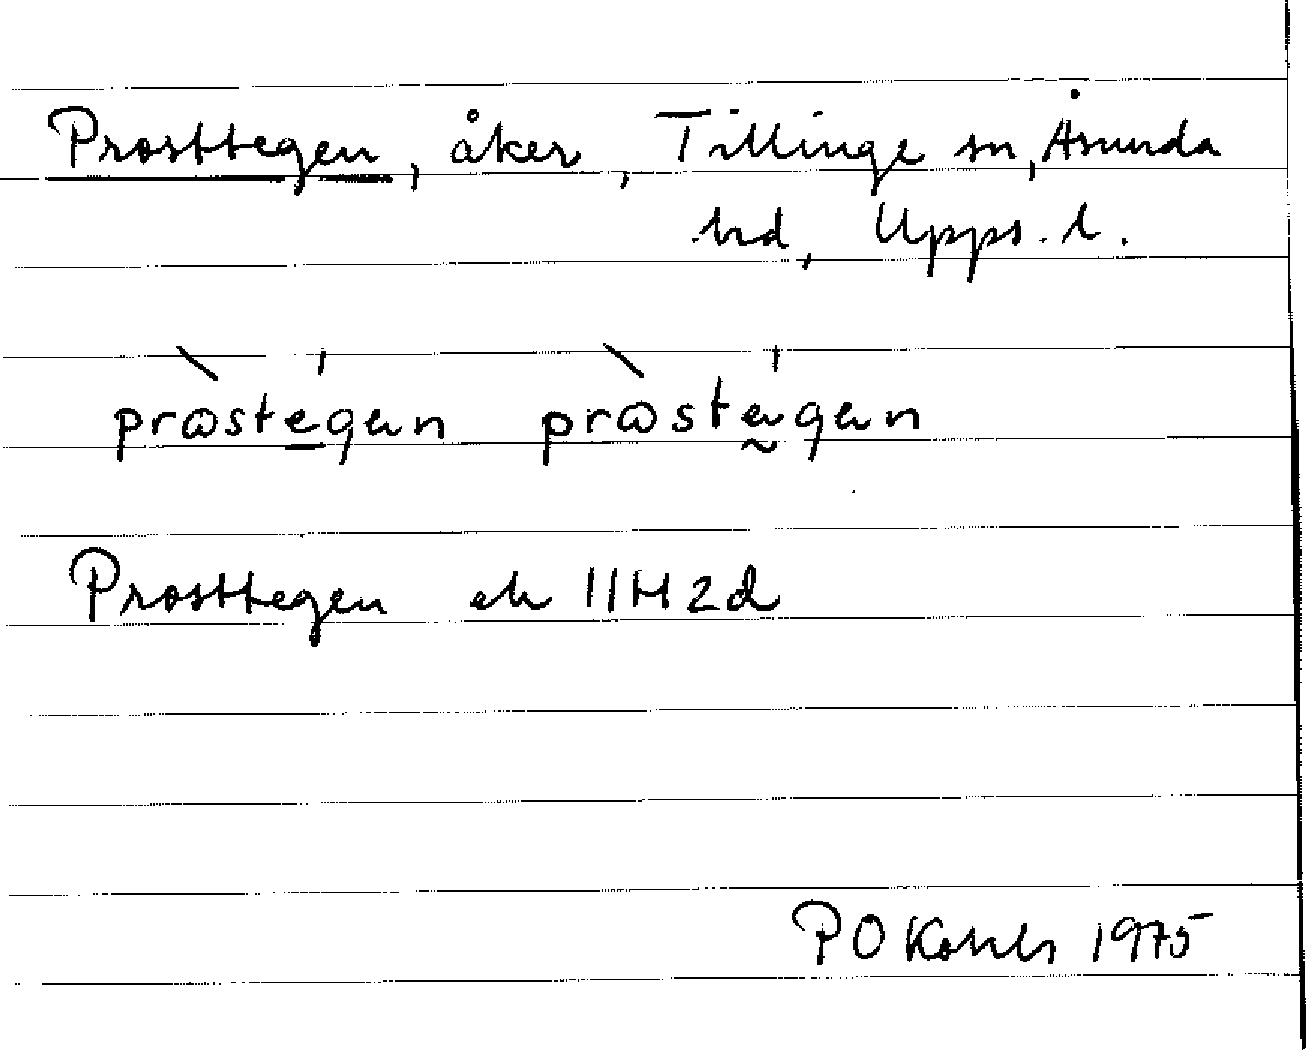 Prosttegen, åker, Tillinge sn, Åsunda
hd, Upps. l.
prɷ̀sté̱gan prɷ̀stá̰gan
Prosttegen ek 11H2d
P O 1975